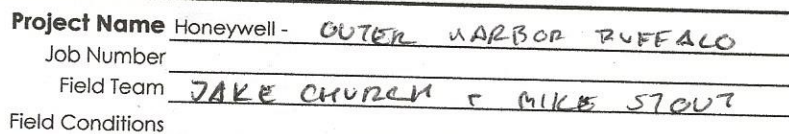 Project Name Honeywell - OUTER HARBOR BUFFALO
Job Number
Field Team JAKE CHURCH + MIKE STOUT
Field Conditions